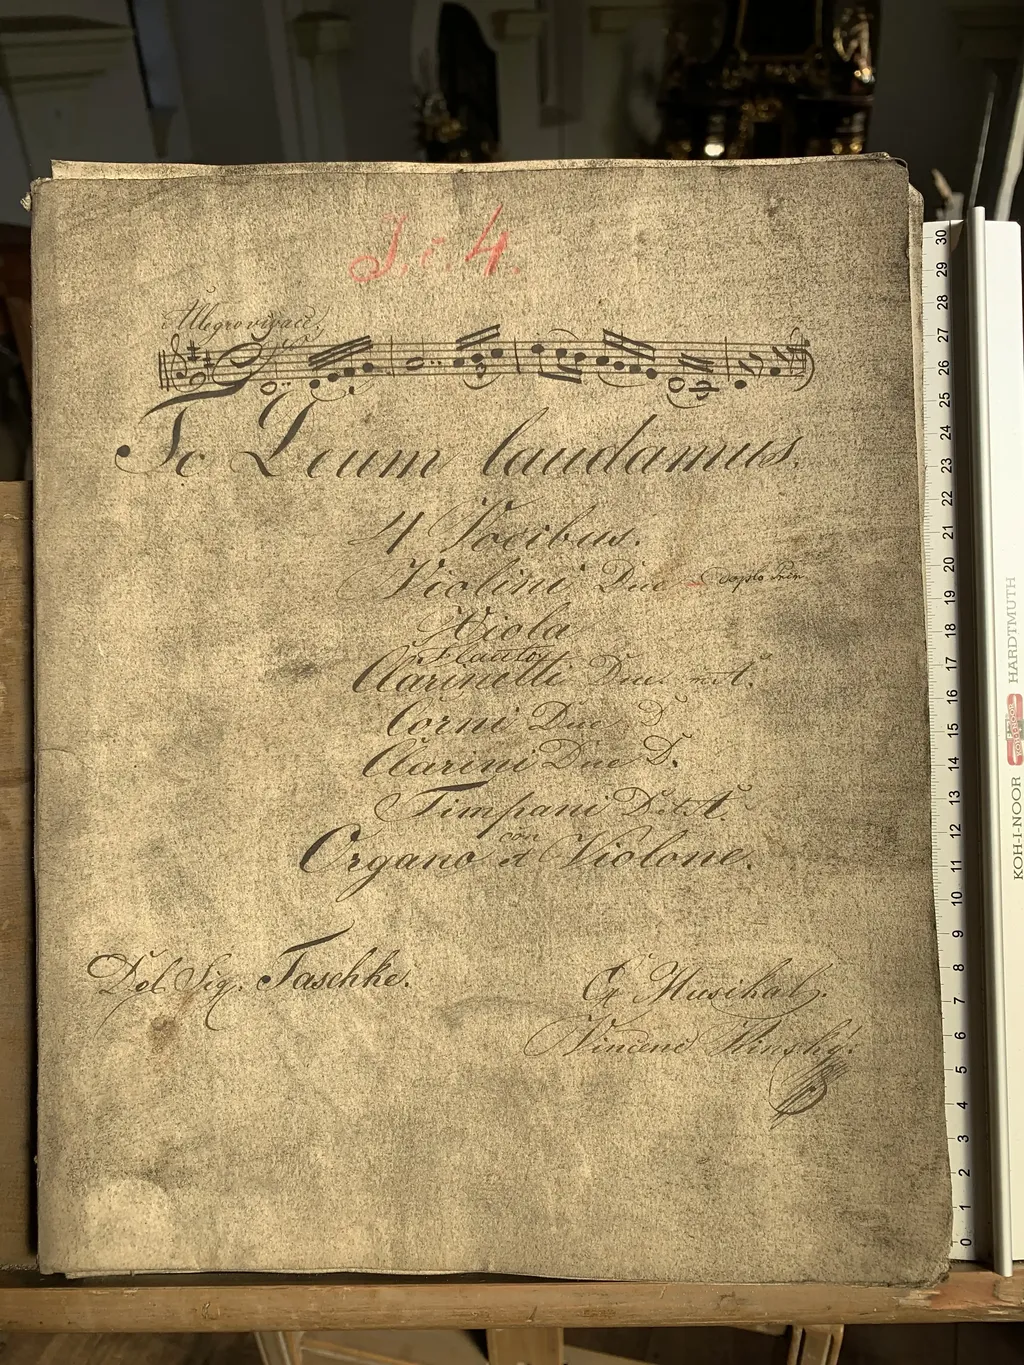 J. č 4.
Allegro vivace.
Te Deum laudamus.
4 Vocibus.
Violini Due - Doplo Prin
Viola
Flauto
Clarinetti Due in A.
Corni Due D
Clarini Due D.
Timpani D et A.
con
Organo et Violone.
Del Sig. Taschke.
Ex Musikal.
Vincenc
30
29
28
27
26
25
24
23
22
21
20
19
18
17
16
15
14
13
12
11
10
9
8
7
6
5
4
3
2
1
0
KOH-I-NOOR HARDTMUTH